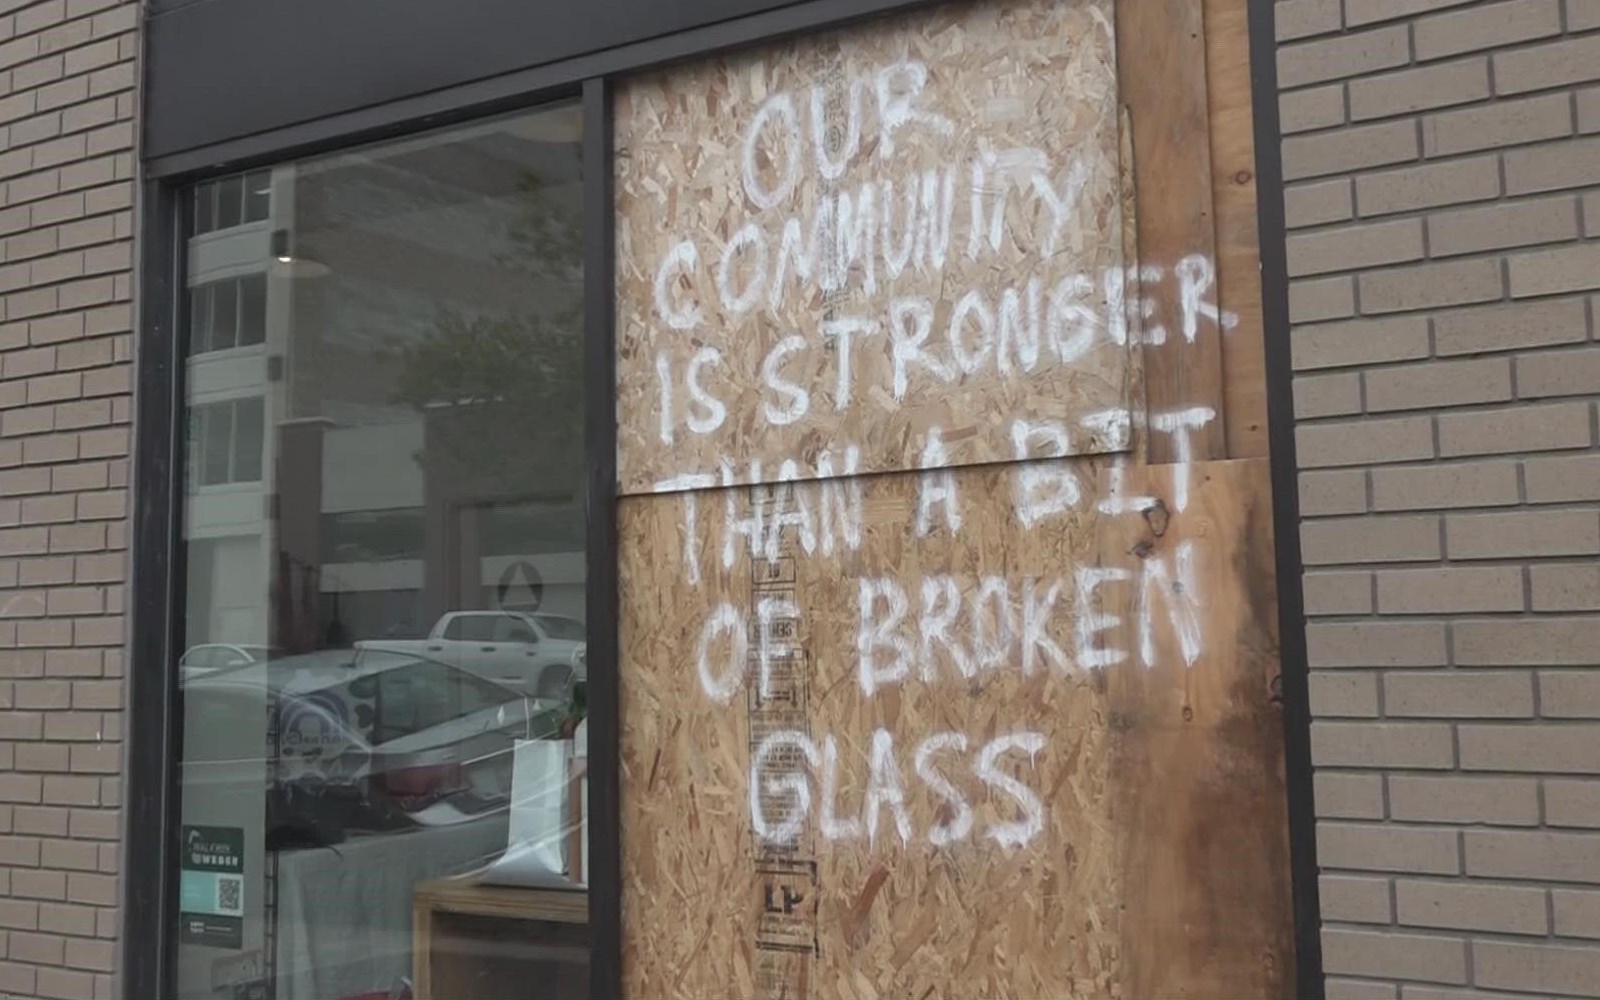 OUR
COMMUNITY
IS STRONGER
THAN A BIT
OF BROKEN
GLASS
LP
WEBER